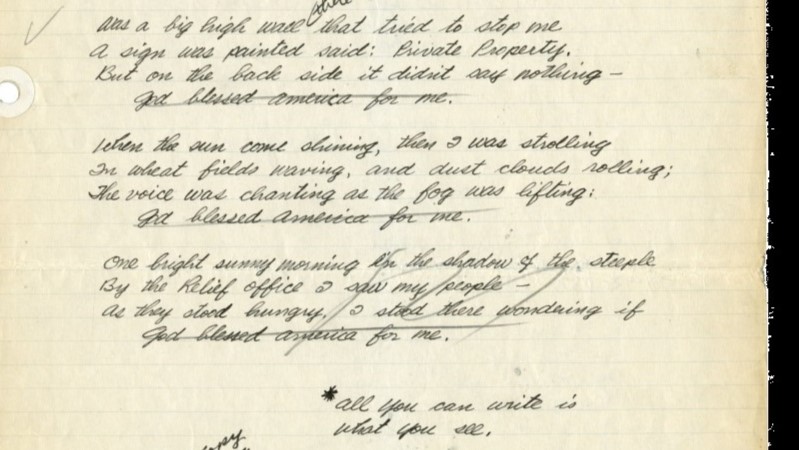 Was a big high wall there that tried to stop me
A sign was painted said: Private Property.
But on the back side it didn't say nothing —
God blessed America for me.
When the sun come shining, then I was strolling
In wheat fields waving, and dust clouds rolling;
The voice was chanting as the fog was lifting:
God blessed America for me.
One bright sunny morning in the shadow of the steeple
By the Relief office I saw my people —
As they stood hungry, I stood there wondering if
God blessed America for me.
*All you can write is
what you see.